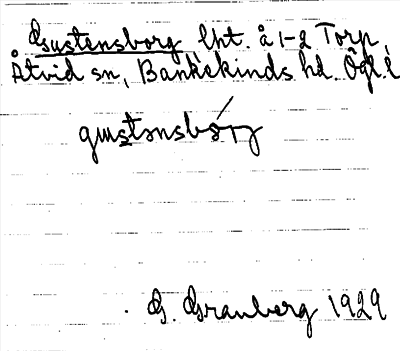 Gustensborg lht. å 1-2 Torp,
Åtvid sn, Bankekinds hd. Ögl.
gɯstənsbɔrj
G. Granberg 1929